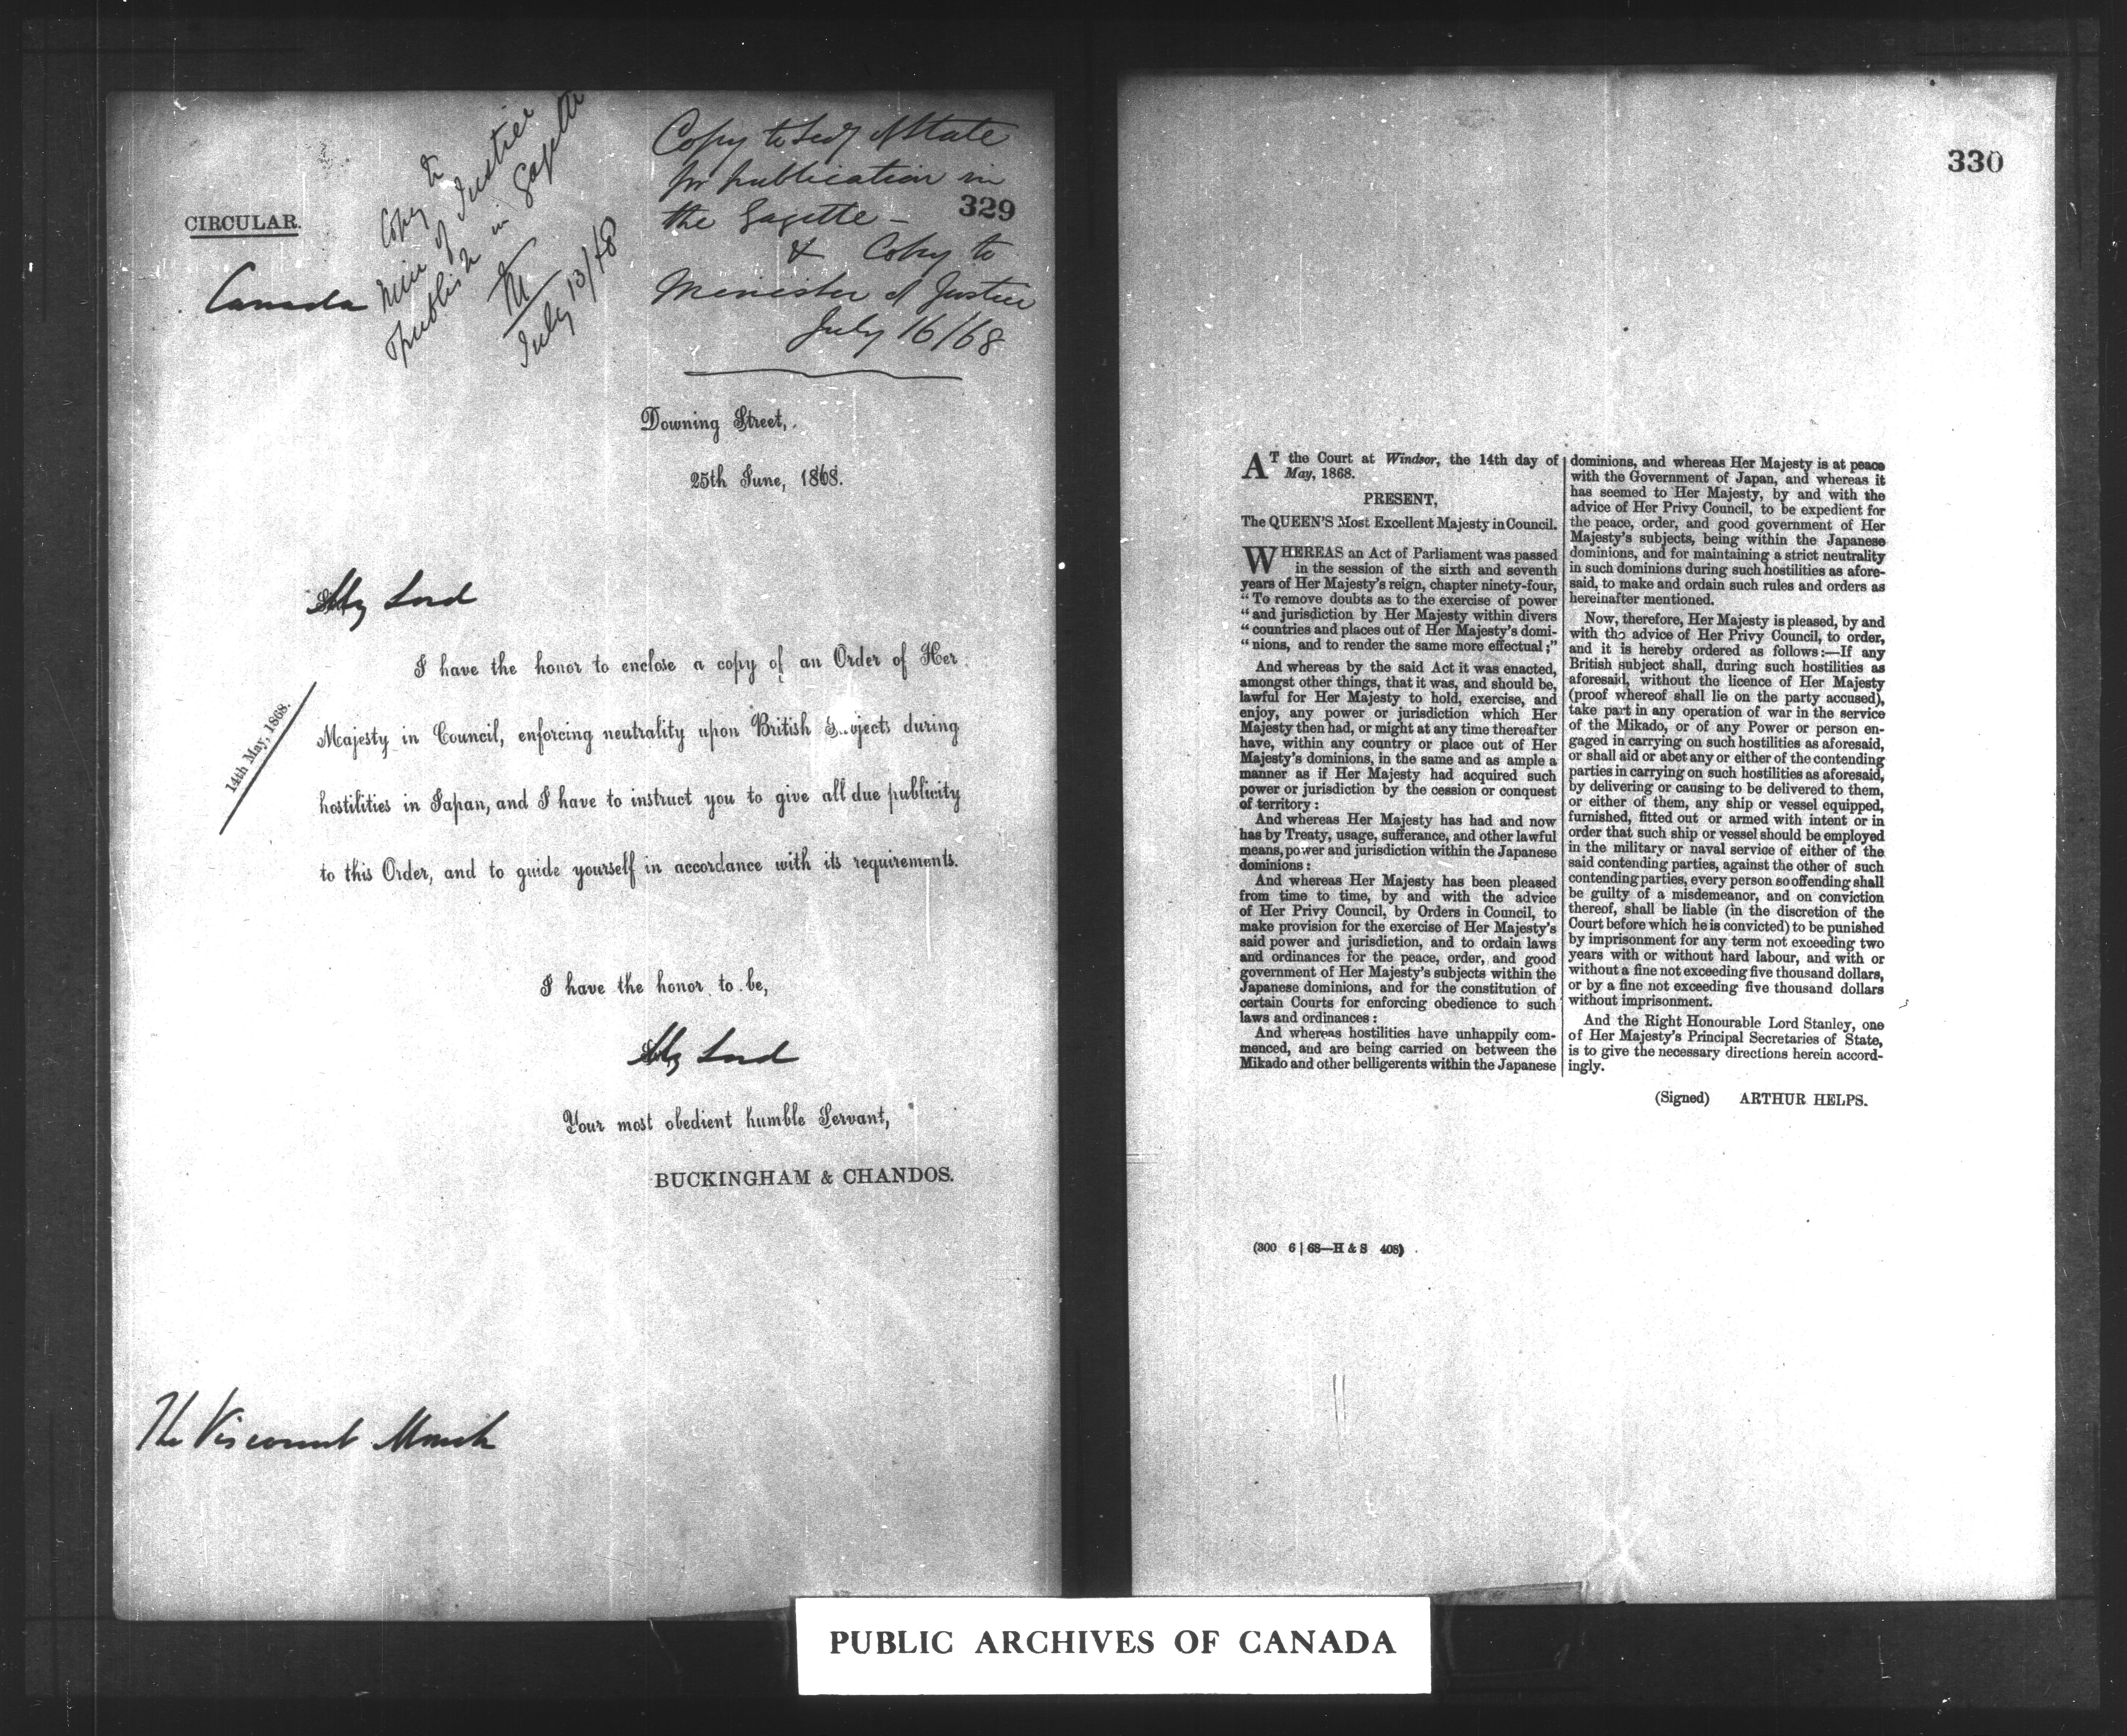 CIRCULAR.
Canada
Copy to
Min of Justice
publish in Gazette
M
July 13/68
Copy to Secy of State
for publication in
the Gazette -
329
& Copy to
Minister of Justice
July 16/68
Downing Street,
25th June, 1868.
My Lord
I have the honor to enclose a copy of an Order of Her
14th May, 1868.
Majesty in Council, enforcing neutrality upon British S..ojects during
hostilities in Japan, and I have to instruct you to give all due publicity
to this Order, and to guide yourself in accordance with its requirements.
I have the honor to be,
My Lord
Your most obedient humble Servant,
BUCKINGHAM & CHANDOS.
The Viscount Monck
330
AT the Court at Windsor, the 14th day of
May, 1868.
PRESENT,
The QUEEN'S Most Excellent Majesty in Council.
WHEREAS an Act of Parliament was passed
in the session of the sixth and seventh
years of Her Majesty's reign, chapter ninety-four,
"To remove doubts as to the exercise of power
"and jurisdiction by Her Majesty within divers
"countries and places out of Her Majesty's domi-
"nions, and to render the same more effectual;"
And whereas by the said Act it was enacted,
amongst other things, that it was, and should be,
lawful for Her Majesty to hold, exercise, and
enjoy, any power or jurisdiction which Her
Majesty then had, or might at any time thereafter
have, within any country or place out of Her
Majesty's dominions, in the same and as ample a
manner as if Her Majesty had acquired such
power or jurisdiction by the cession or conquest
of territory:
And whereas Her Majesty has had and now
has by Treaty, usage, sufferance, and other lawful
means, power and jurisdiction within the Japanese
dominions:
And whereas Her Majesty has been pleased
from time to time, by and with the advice
of Her Privy Council, by Orders in Council, to
make provision for the exercise of Her Majesty's
said power and jurisdiction, and to ordain laws
and ordinances for the peace, order, and good
government of Her Majesty's subjects within the
Japanese dominions, and for the constitution of
certain Courts for enforcing obedience to such
laws and ordinances:
And whereas hostilities have unhappily com-
menced, and are being carried on between the
Mikado and other belligerents within the Japanese
dominions, and whereas Her Majesty is at peace
with the Government of Japan, and whereas it
has seemed to Her Majesty, by and with the
advice of Her Privy Council, to be expedient for
the peace, order, and good government of Her
Majesty's subjects, being within the Japanese
dominions, and for maintaining a strict neutrality
in such dominions during such hostilities as afore-
said, to make and ordain such rules and orders as
hereinafter mentioned.
Now, therefore, Her Majesty is pleased, by and
with the advice of Her Privy Council, to order,
and it is hereby ordered as follows:—If any
British subject shall, during such hostilities as
aforesaid, without the licence of Her Majesty
(proof whereof shall lie on the party accused),
take part in any operation of war in the service
of the Mikado, or of any Power or person en-
gaged in carrying on such hostilities as aforesaid,
or shall aid or abet any or either of the contending
parties in carrying on such hostilities as aforesaid,
by delivering or causing to be delivered to them,
or either of them, any ship or vessel equipped,
furnished, fitted out or armed with intent or in
order that such ship or vessel should be employed
in the military or naval service of either of the
said contending parties, against the other of such
contending parties, every person so offending shall
be guilty of a misdemeanor, and on conviction
thereof, shall be liable (in the discretion of the
Court before which he is convicted) to be punished
by imprisonment for any term not exceeding two
years with or without hard labour, and with or
without a fine not exceeding five thousand dollars,
or by a fine not exceeding five thousand dollars
without imprisonment.
And the Right Honourable Lord Stanley, one
of Her Majesty's Principal Secretaries of State,
is to give the necessary directions herein accord-
ingly.
(Signed) ARTHUR HELPS.
(300 6 | 68—H & S 408)
PUBLIC ARCHIVES OF CANADA